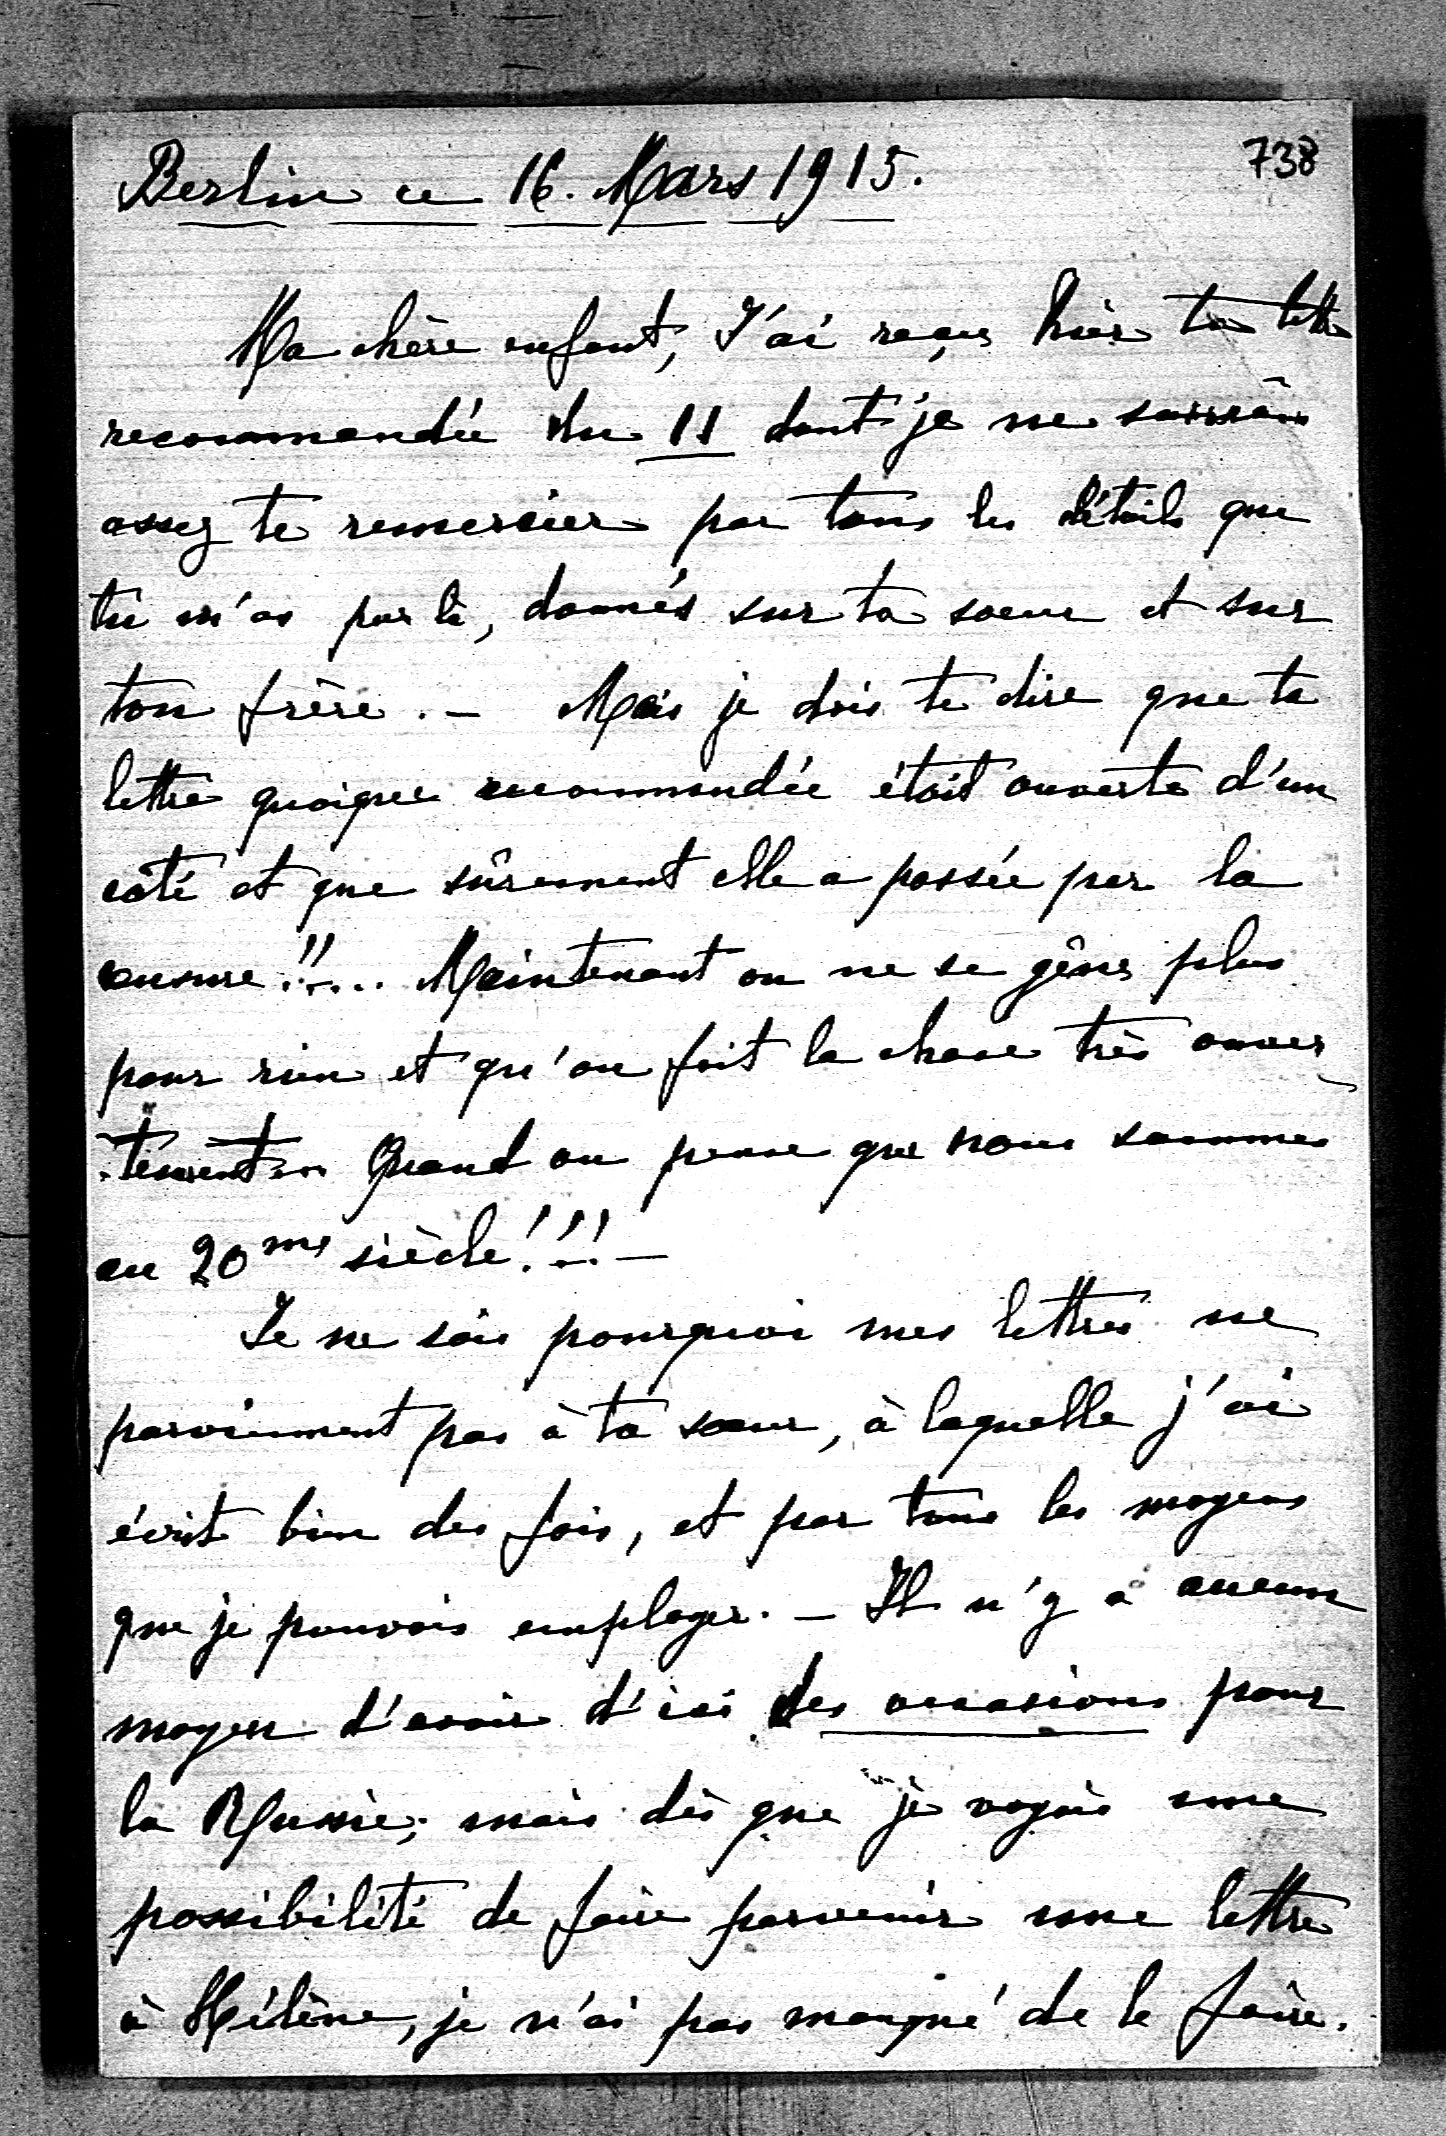 738
Berlin ce 16. Mars 1915.
Ma chère enfant, J'ai reçu hier ta lettre
recommandée du 11 dont je ne
assez te remercier par tous les détails que
tu m'as par là, donnés sur ta soeur et sur
ton frère. – Mais je dois te dire que ta
lettre quoique recommandée était ouverte d'un
côté et que sûrement elle a passée par la
censure!!... Maintenant on ne se gêne plus
pour rien et qu'on fait la chose très ouver
tement Quand on pense que nous sommes
au 20me siècle!!! –
Je ne sais pourquoi mes lettres ne
parviennent pas à ta soeur, à laquelle j'ai
écrit bien des fois, et par tous les moyens
que je pouvais employer. – Il n'y a aucun
moyen d'avoir d'ici des occasions pour
la Russie; mais dès que je voyais une
possibilité de faire parvenir une lettre
à Hélène, je n'ai pas manqué de le faire.